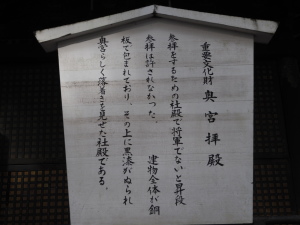 重要文化財 奥宮拝殿
参拝をするための社殿で将軍でないと昇殿
参拝は許されなかった。 建物全体が銅
板で包まれており、その上に黒漆がぬられ
奥宮らしく落着きを見せた社殿である。